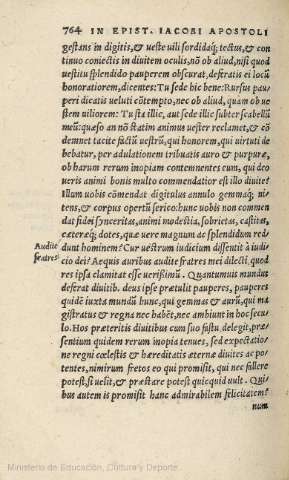 764 IN EPIST. IACOBI APOSTOLI
gestans in digitis, & ueste uili sordidaq́; tectus, & con
tinuo coniectis in diuitem oculis, nõ ob aliud, nisi quod
uestitu splendido pauperem obscurat, deferatis ei locũ
honoratiorem, dicentes: Tu sede hic bene: Rursus pau/
peri dicatis ueluti cõtempto, nec ob aliud, quam ob ue
stem uiliorem: Tu sta illic, aut sede illic subter scabellũ
meũ: quæso an nõ statim animus uester reclamet, & cõ
demnet tacite factũ uestrũ, qui honorem, qui uirtuti de
bebatur, per adulationem tribuatis auro & purpuræ,
ob harum rerum inopiam contemnentes eum, qui deo
ueris animi bonis multo commendatior est illo diuite?
Illum uobis cõmendat digitulus annulo gemmaq́; ni/
tens, & corpus opertũ serico: hunc uobis non commen
dat fidei synceritas, animi modestia, sobrietas, castitas,
cæteræq́; dotes, quæ uere magnum ac splendidum red/
Audite
fratres
dunt hominem? Cur uestrum iudicium dissentit à iudi/
cio dei? Aequis auribus audite fratres mei dilecti, quod
res ipsa clamitat esse uerißimũ. Quantumuis mundus
deferat diuitib. deus ipse prætulit pauperes, pauperes
quidẽ iuxta mundũ hunc, qui gemmas & aurũ, qui ma
gistratus & regna nec habẽt, nec ambiunt in hoc secu/
lo. Hos præteritis diuitibus cum suo fastu delegit, præ/
sentium quidem rerum inopia tenues, sed expectatio/
ne regni cœlestis & hæreditatis æternæ diuites ac po/
tentes, nimirum fretos eo qui promisit, qui nec fallere
potest, si uelit, & præstare potest quicquid uult. Qui/
bus autem is promisit hanc admirabilem felicitatem?
num
Ministerio de Educación, Cultura y Deporte